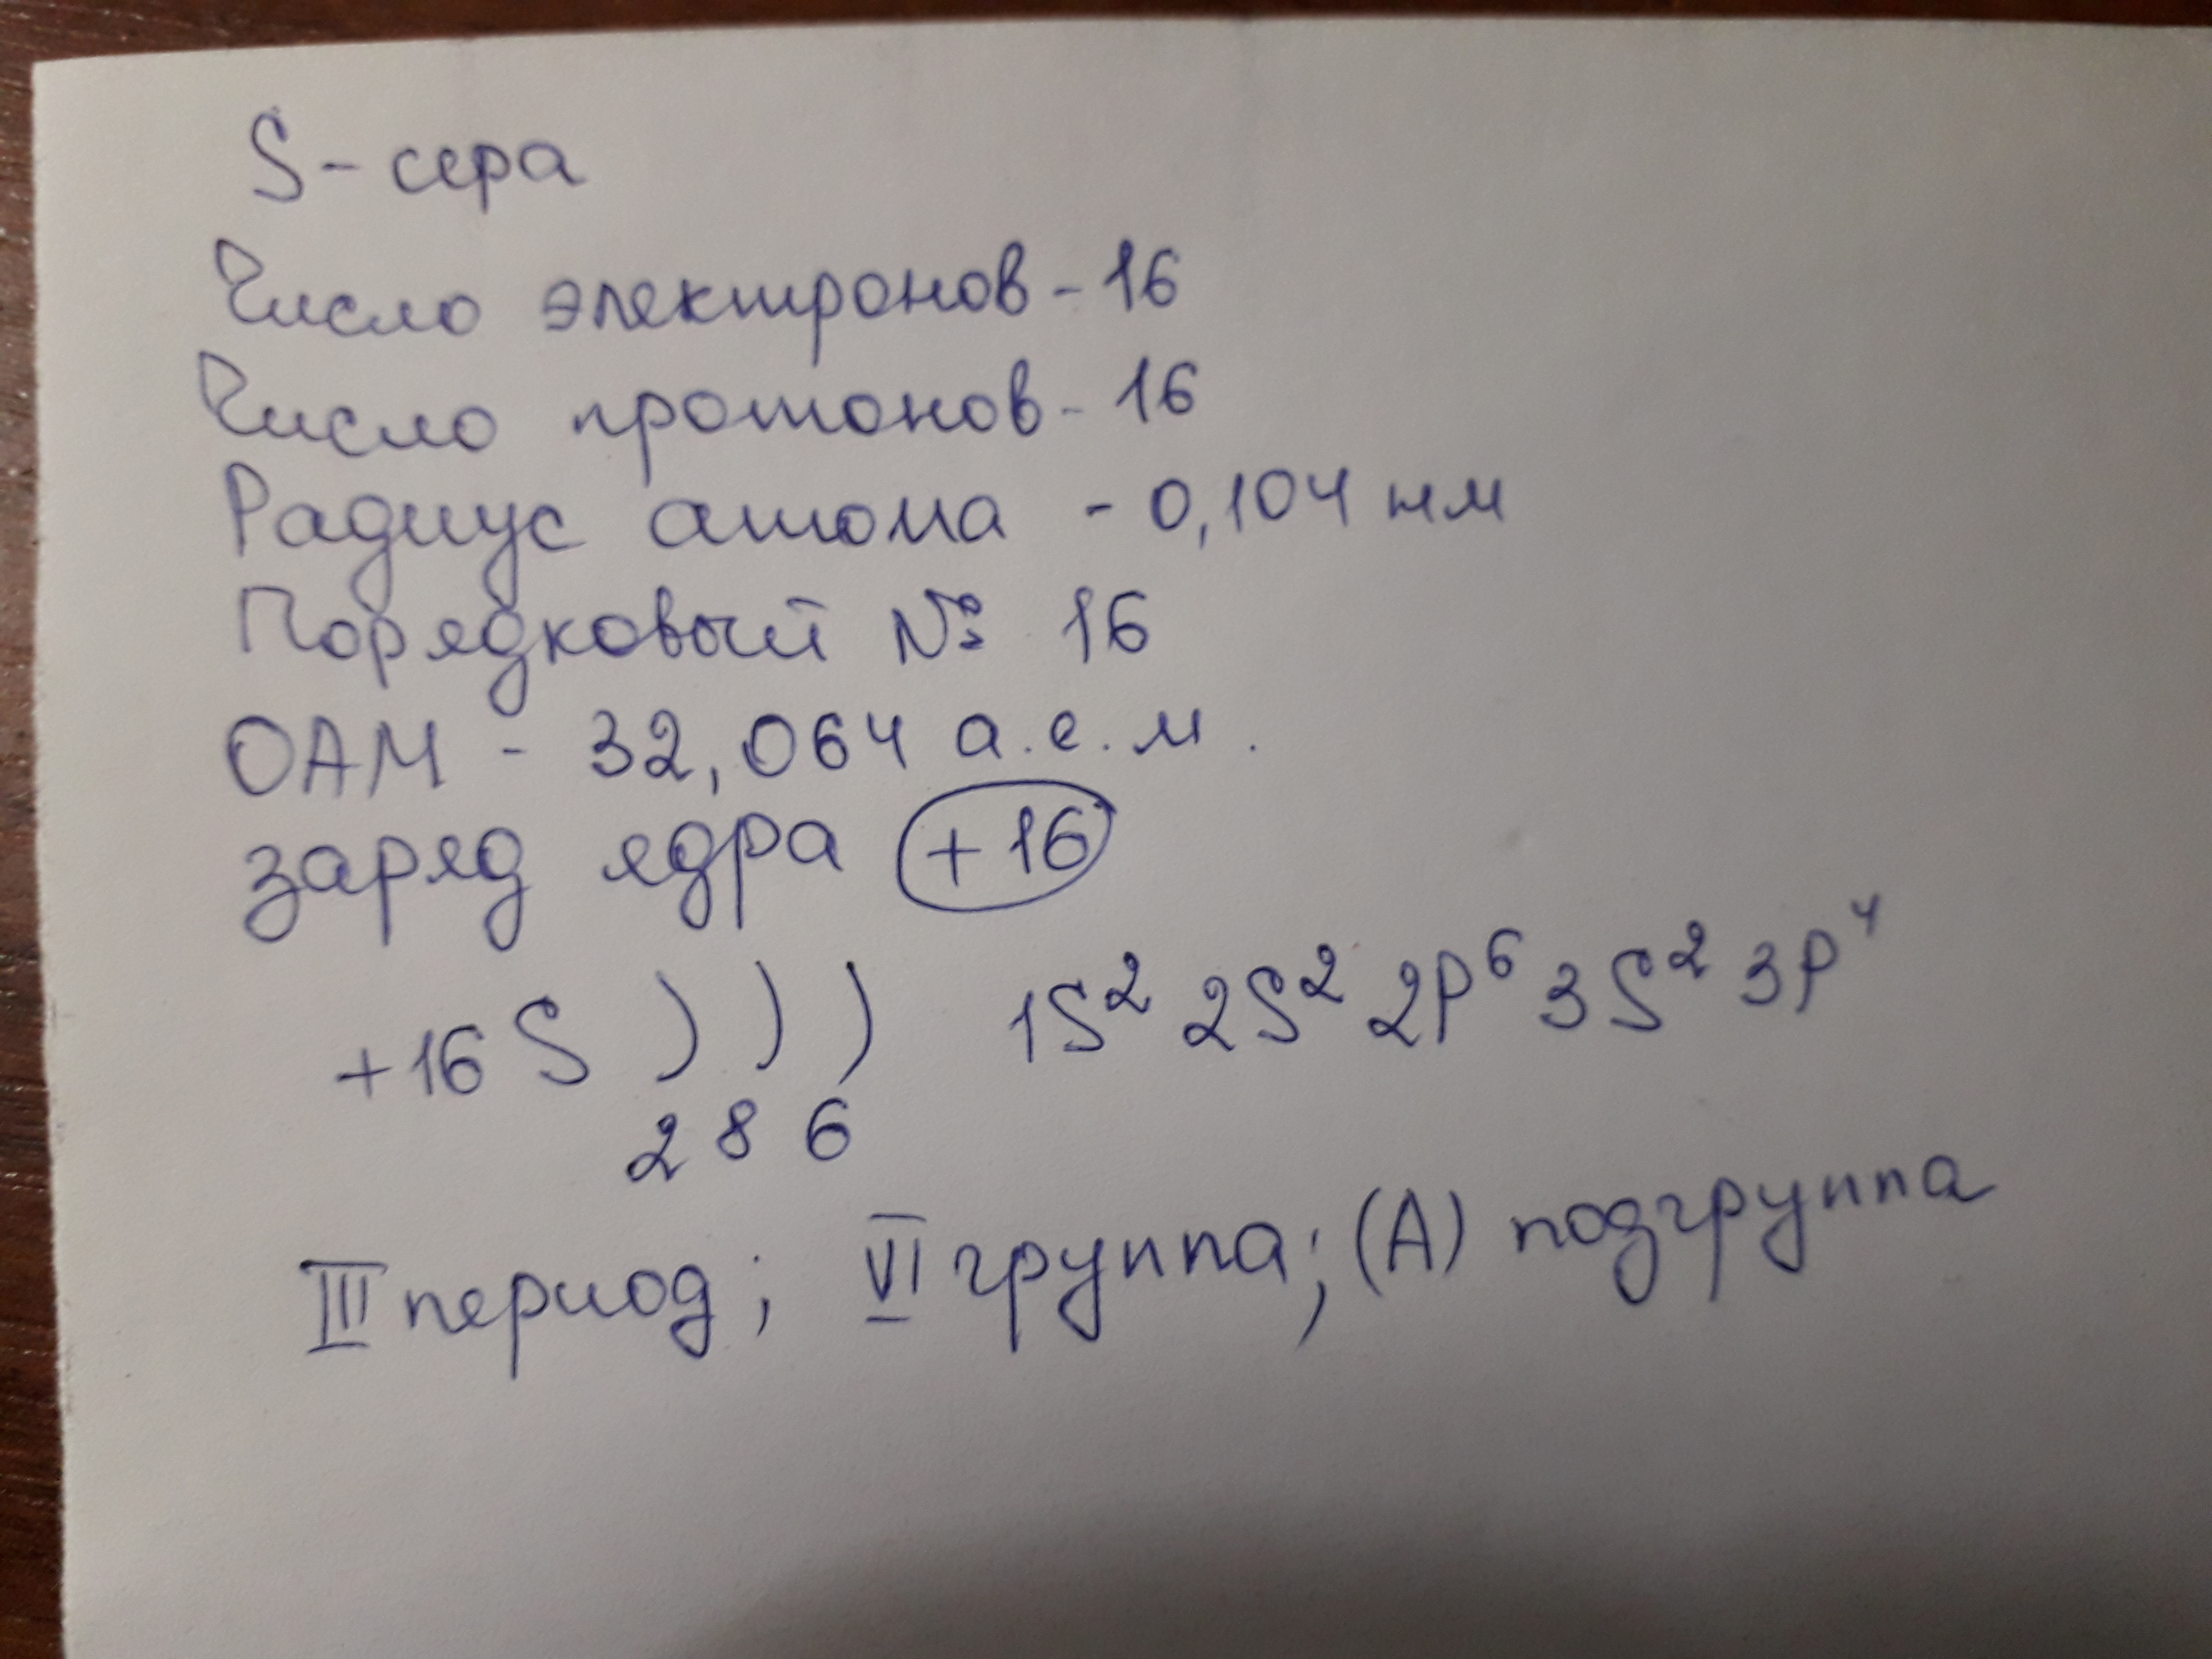 S - сера
Число электронов - 16
Число протонов - 16
Радиус атома - 0,104 нм
Порядковый № 16
ОАМ - 32,064 а.е.м.
заряд ядра +16
+16 S ) ) ) 1S² 2S² 2P⁶ 3S² 3P⁴
2 8 6
III период; VI группа; (А) подгруппа